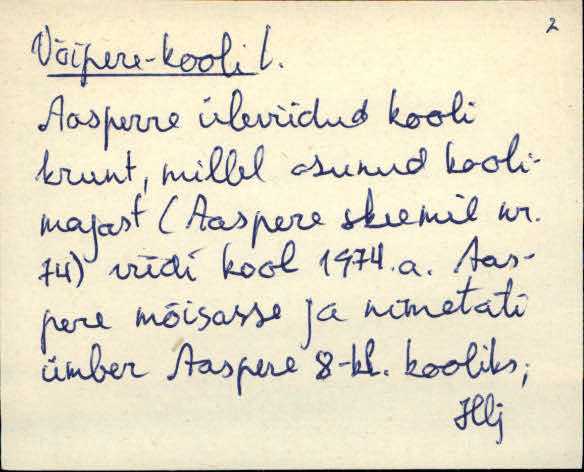 2
Võipere-kooli l.
Aasperre üleviidud kooli
krunt, millel asunud kooli-
majast (Aaspere skeemil nr.
74) viidi kool 1974.a. Aas-
pere mõisasse ja nimetati
ümber Aaspere 8-kl. kooliks;
Hlj